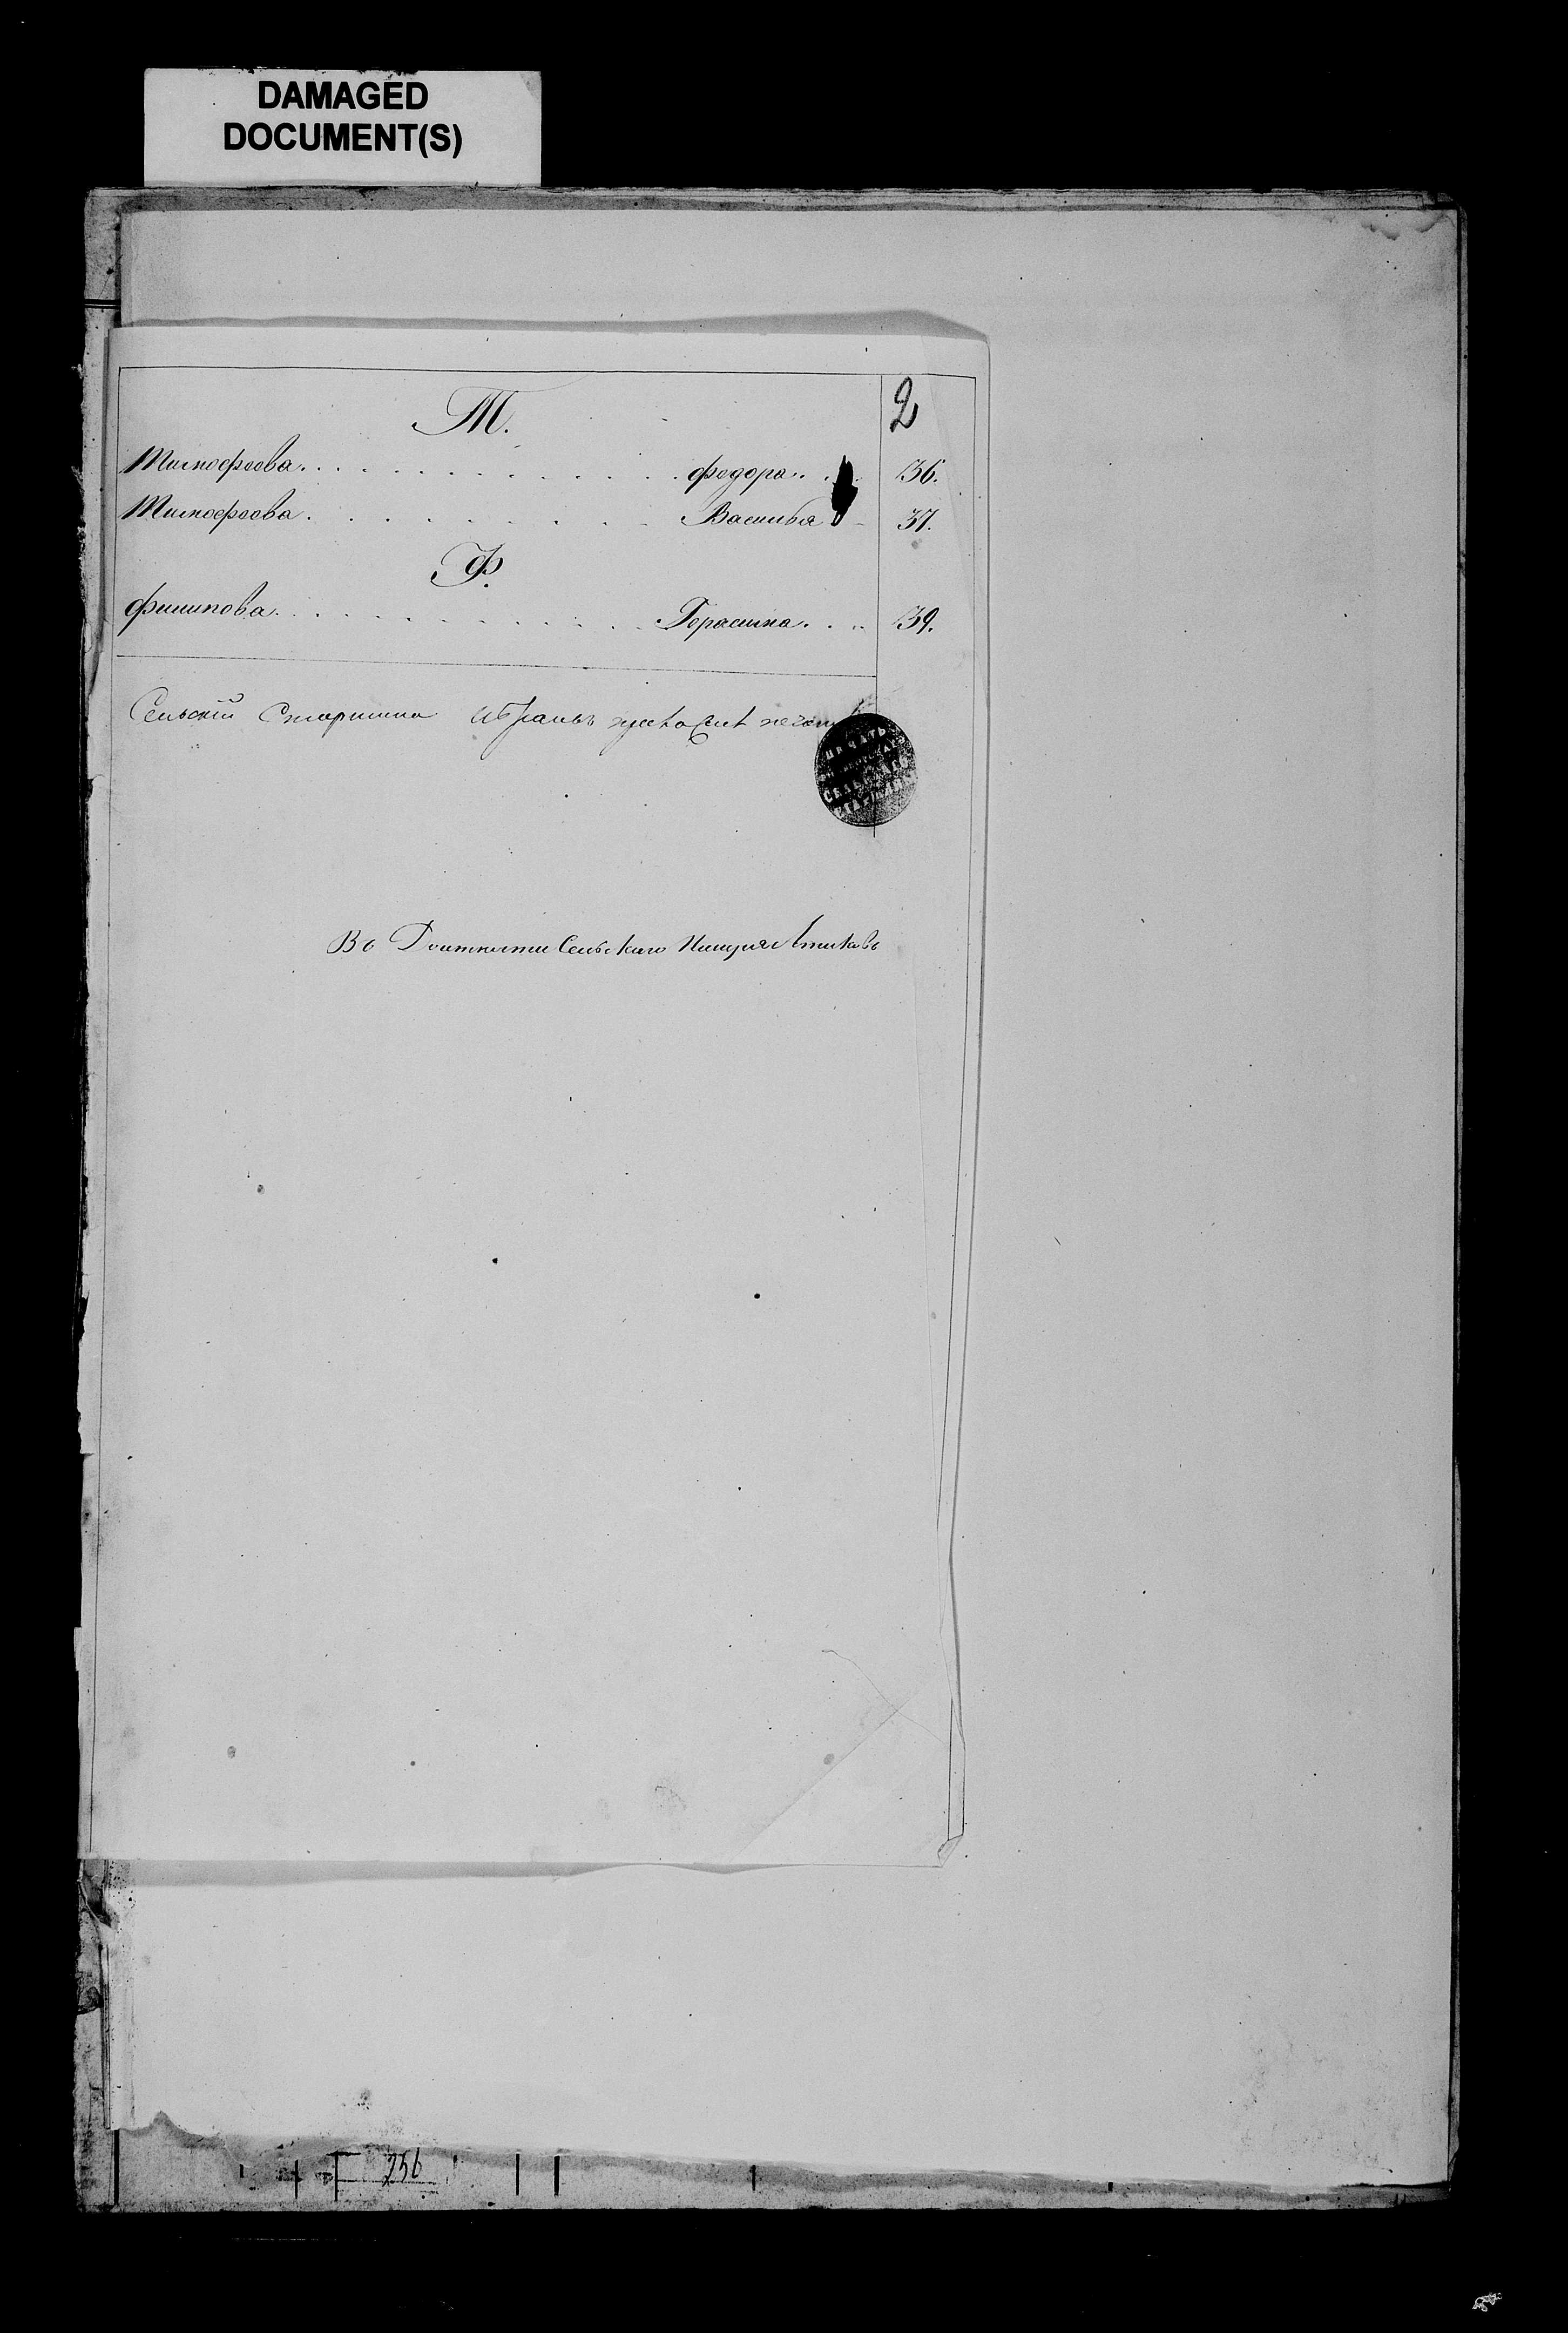 DAMAGED
DOCUMENT(S)
2
Т.
Тимофеева. . . . . . . . . . . . федора. . . 136.
Тимофеева . . . . . . . . . Василья 137.
Ф.
филипова. . . . . . . . . . . . Герасима. . . . 139.
Сельскій Старшина печать
ПЕЧАТЬ
СЕЛЬСКАГО
СТАРШИНЫ
Въ Должности Сельскаго Писаря
256